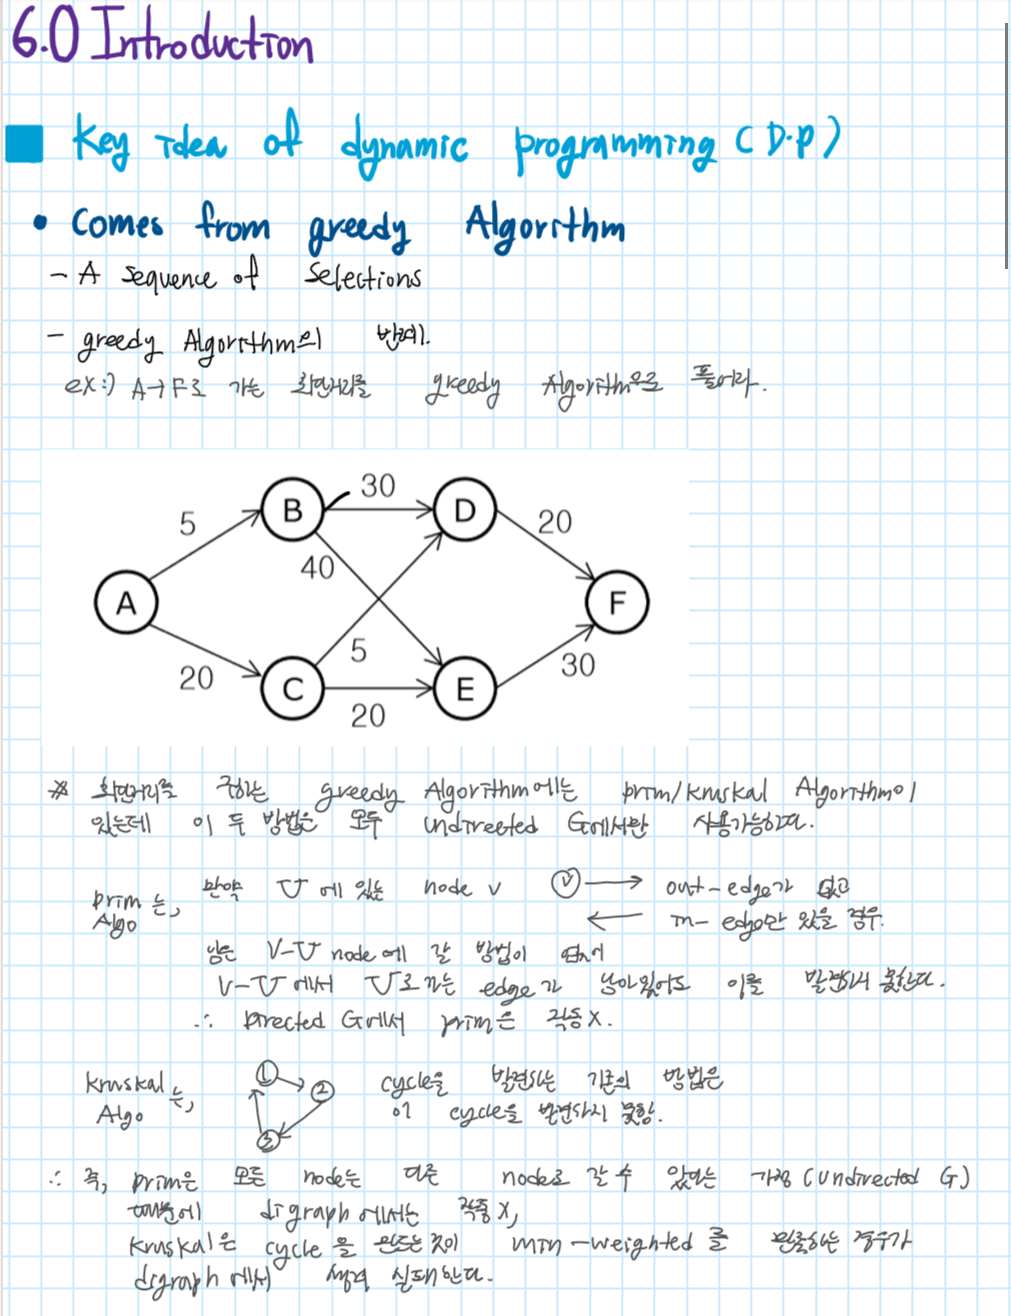 6.0 Introduction
Key idea of dynamic programming (D.P)
• Comes from greedy Algorithm
- A sequence of Selections
- greedy Algorithm의 반례.
ex:) A→F로 가는 최단거리를 greedy Algorithm으로 풀어라.
30
B
D
5
20
40
A
F
5
20
30
C
E
20
※ 최단거리를 구하는 greedy Algorithm에는 prim/kruskal Algorithm이
있는데 이 두 방법은 모두 undirected G에서만 사용가능하다.
prim Algo는, 만약 U에 있는 node v ⓥ→ out-edge가 없고
← in-edge만 있을 경우.
남은 V-U node에 갈 방법이 없어
V-U에서 U로가는 edge가 남아있어도 이를 발견하지 못한다.
∴ Directed G에서 prim은 작동 X.
kruskal Algo는, ① ② ③ cycle을 발견하는 기존의 방법은
이 cycle을 발견하지 못함.
∴ 즉, prim은 모든 node는 다른 node로 갈 수 있다는 가정 (undirected G)
때문에 digraph에서는 작동 X,
kruskal은 cycle을 만드는 것이 min-weighted를 만족하는 경우가
digraph에서 생겨 실패한다.